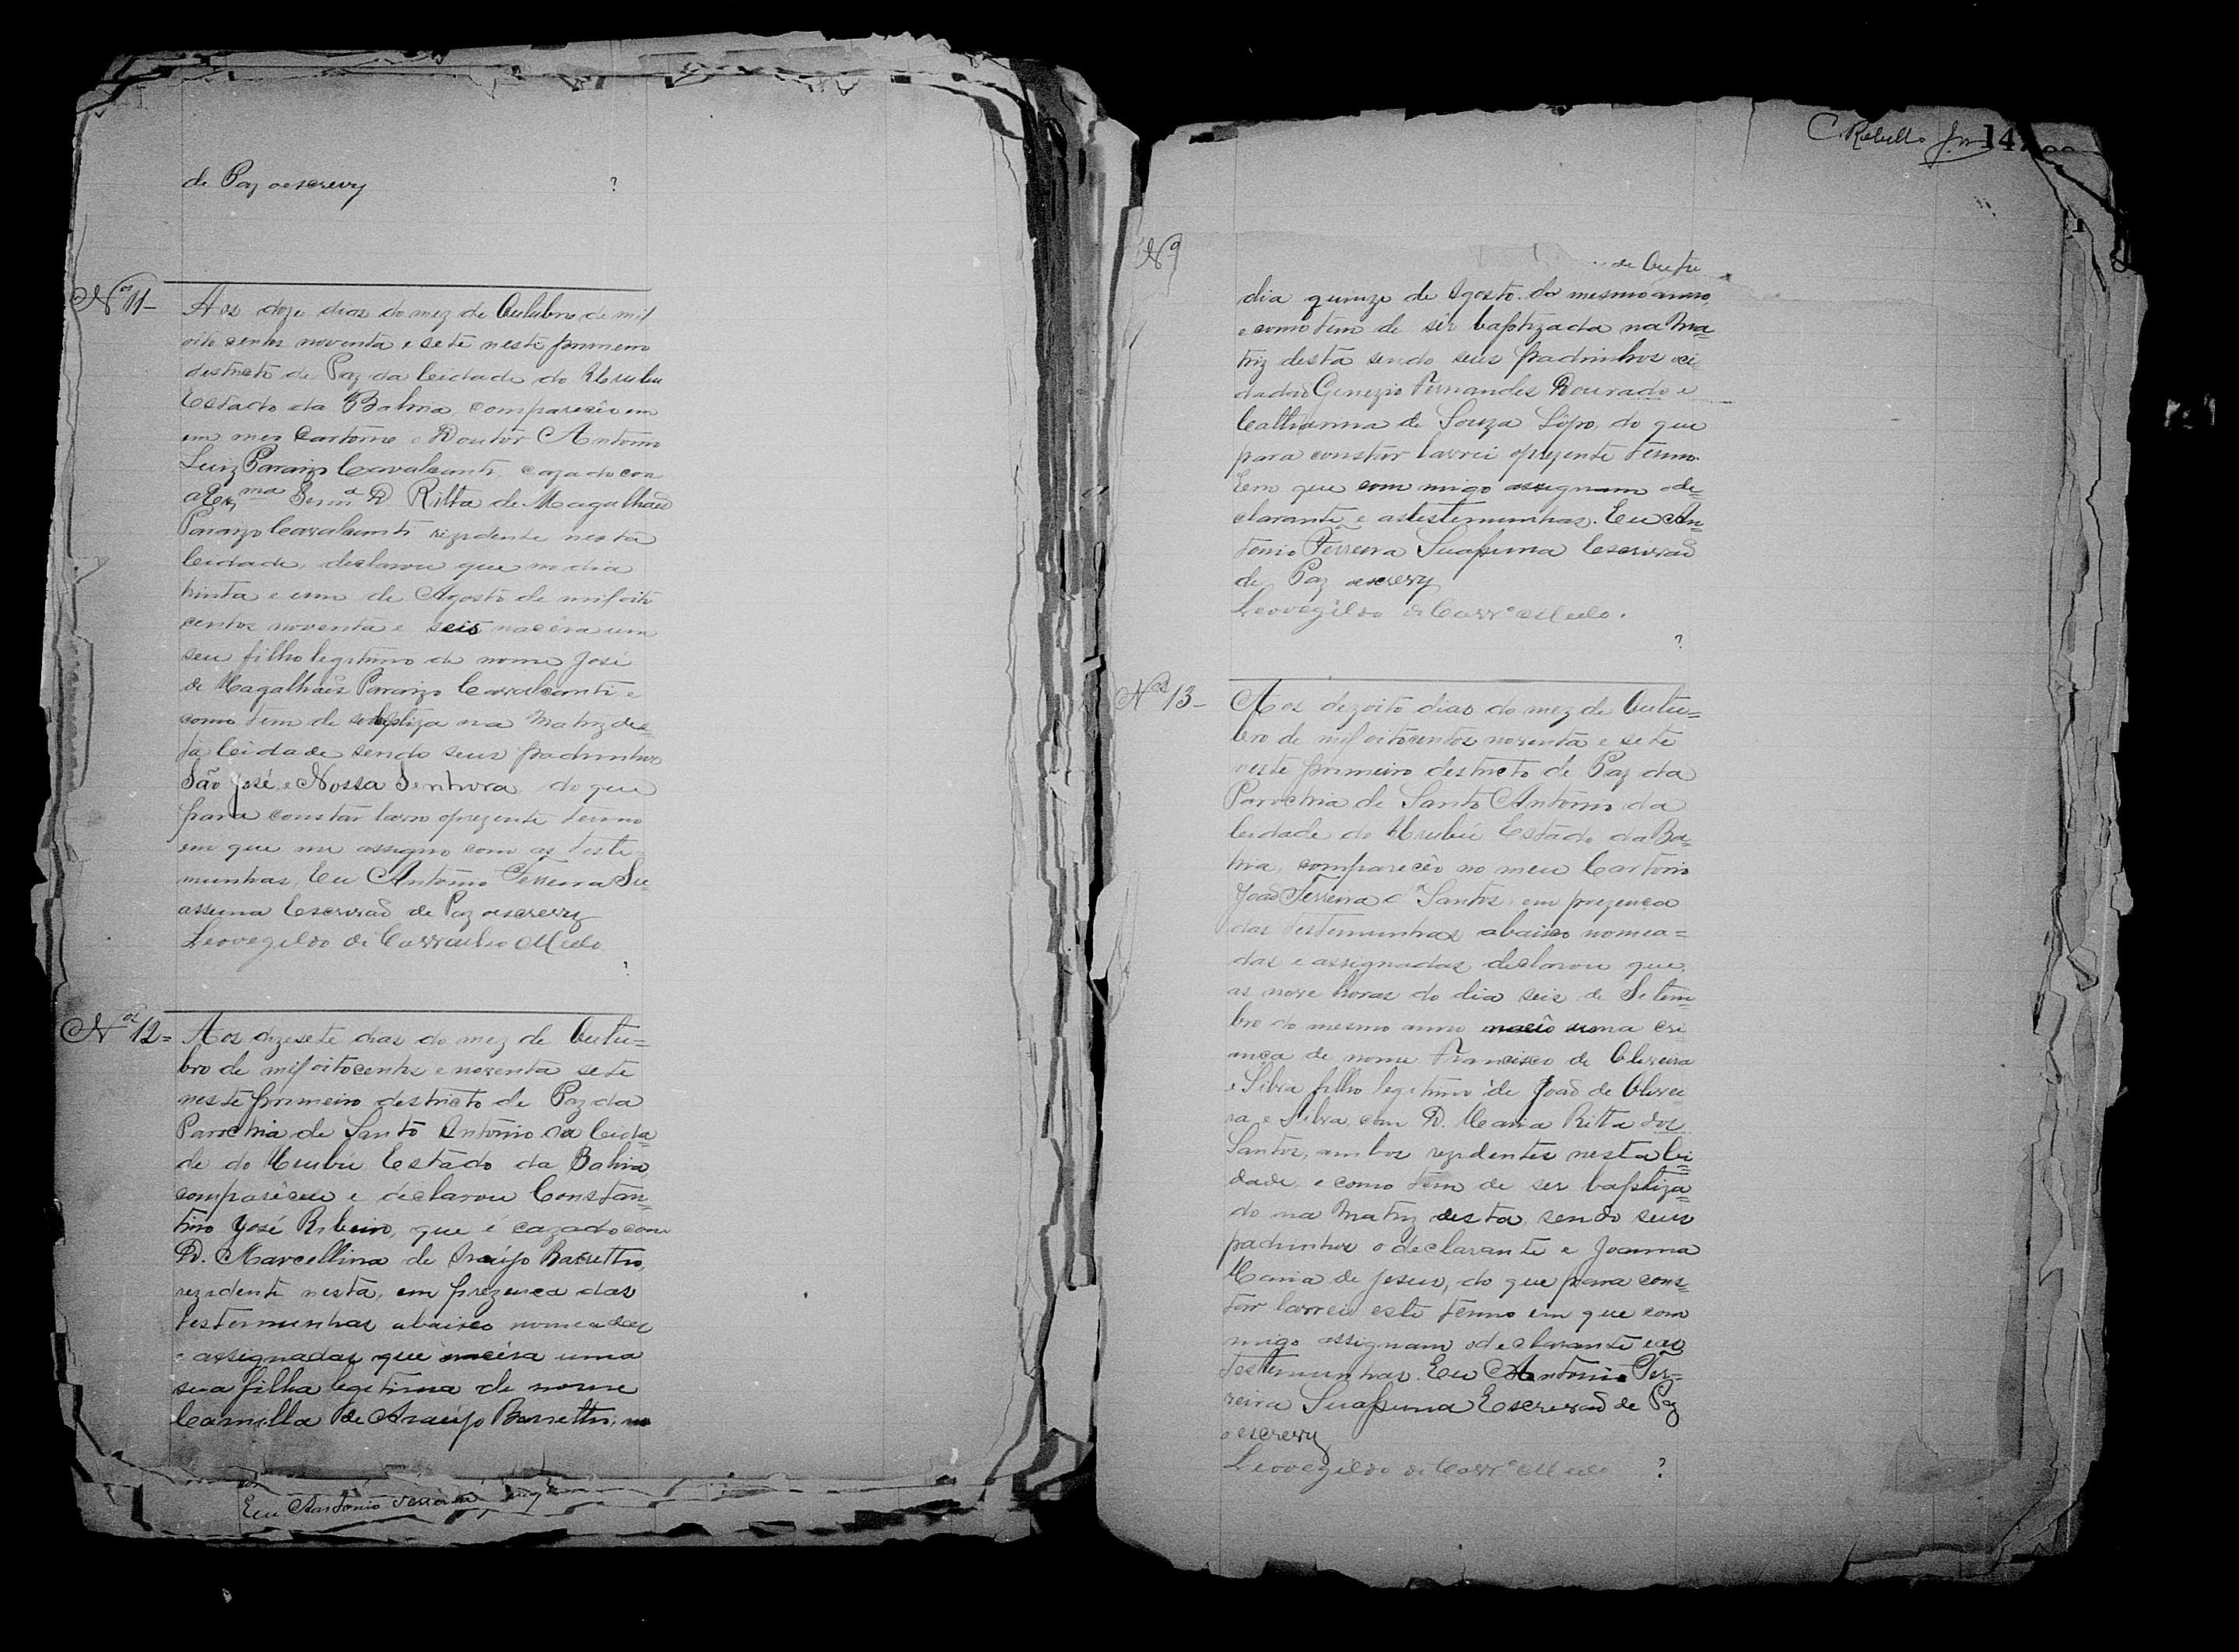 de Paz o escrevy
?
Nos 11-
Aos doze dias do mez de Outubro de mil
oito centos noventa e sete neste primeiro
destricto de Paz da Cidade do Urubu
Estado da Bahia compareceo em
em meo Cartorio o Doutor Antonio
Luiz Paraizo Cavalcanti, cazado com
a Exma Senra D. Ritta de Magalhães
Paraizo Cavalcanti rezidente nesta
Cidade, declarou que no dia
trinta e um de Agosto de mil oito
centos noventa e seis nacêra um
seu filho legitimo de nome José
de Magalhães Paraizo Cavalcanti e
como tem de se baptiza na Matriz des=
ta Cidade sendo seus padrinhos
São José, e Nossa Senhora, do que
para constar lavro o prezente termo
em que me assigno com as teste=
munhas, Eu Antonio Ferreira Su=
assuna Escrivão de Paz o escrevy
Leovegildo de Carvalho Mello
?
Nos 12=
Aos dizesete dias do mez de Outu=
bro de mil oitocentos e noventa sete
neste primeiro destricto de Paz da
Parochia de Santo Antonio da Cida=
de do Urubú Estado da Bahia,
compareceu e declarou Constan=
tino José Ribeiro, que é cazado com
D. Marcellina de Araújo Barretto,
rezidente nesta, em prezença das
testemunhas abaixo nomeadas
e assignadas que nacêra uma
sua filha legitima de nome
Camilla de Araújo Barretto, no
Eu Antonio Ferreira
C. Rebello Jnr 147
No
de Outu
dia quinze de Agosto do mesmo anno,
e como tem de sêr baptizada na Ma=
triz desta sendo seus padrinhos o ci=
dadão Genezio Fernandes Dourado e
Catharina de Souza Lôpo, do que
para constar lavrei o prezente termo.
Em que com migo assignam o de=
clarante e as testemunhas. Eu An=
tonio Ferreira Suassuna Escrivão
de Paz o escrevy
Leovegildo de Carvo Mello.
?
Nos 13-
Aos dezoito dias do mez de Outu=
bro de mil oitocentos noventa e sete
neste primeiro destricto de Paz da
Parochia de Santo Antonio da
Cidade do Urubú Estado da Ba=
hia, compareceo no meu Cartorio
João Ferreira dos Santos, em prezença
das testemunhas abaixo nomea=
das e assignadas, declarou que,
as nove horas do dia seis de Setem=
bro do mesmo anno naceo uma cri
ança de nome Francisco de Oliveira
e Silva filho legitimo de João de Olivei
ra e Silva, com D. Maria Ritta dos
Santos, ambos rezidentes nesta Ci=
dade, e como tem de ser baptiza=
do na Matriz desta, sendo seus
padrinhos o declarante e Joanna
Maria de Jesus, do que para cons=
tar lavrei este termo em que com
migo assignam o declarante e as
testemunhas. Eu Antonio Fer=
reira Suassuna Escrivão de Paz
o escrevy
Leovegildo de Carvo Mello
?